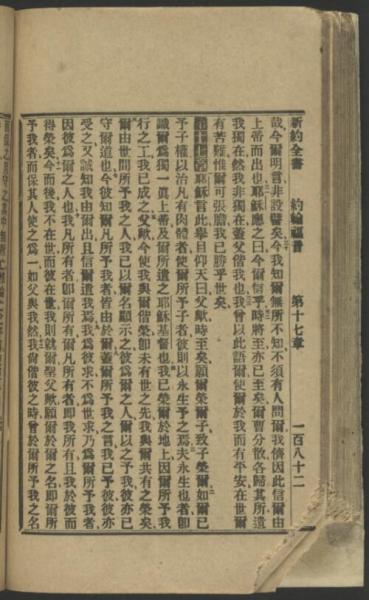 新約全書 約翰福音 第十七章 一百八十二
哉今爾明言非設譬矣今我知爾無所不知不須有人問爾我儕因此信爾由
上帝而出也耶穌應之曰今爾信乎時將至亦已至矣爾曹分散各歸其所遺
我獨在然我非獨在蓋父偕我也我曾以此語爾使爾於我而有平安在世爾
有苦難惟爾可張膽我已勝乎世矣
第十七章耶穌言此舉目仰天曰父歟時至矣願爾榮爾子致子榮爾如爾已
予子權以治凡有肉體者使爾所予子者彼則以永生予之焉夫永生也者卽
識爾爲獨一眞上帝及爾所遣之耶穌基督也我已榮爾於地上因爾所予我
行之工我已成之父歟今使我與爾偕榮卽未有世之先我與爾共有之榮矣
爾由世間所予我之人我已以爾名顯示之彼爲爾之人爾以之予我彼亦已
守爾道也今彼知爾凡所予我者皆由於爾蓋爾所予我之言我已予彼彼亦
受之又誠知我由爾出且信爾遣我焉我爲彼求不爲世求乃爲爾所予我者
因彼爲爾之人也我凡所有者卽爾所有爾凡所有者卽我所有且我於彼而
得榮矣今而後我不在世而彼在世我則就爾聖父歟願爾於爾之名卽爾所
予我者而保其人使之爲一如父與我然我尙偕彼之時曾於爾所予我之名